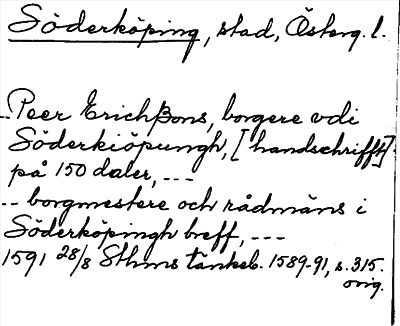 Söderköping, stad, Österg. l.
--Peer Erichßons, borgere vdi
Söderkiöpungh, [handschrifft]
på 150 daler, ---
-- borgmestere och rådmäns i
Söderköpingh breff, ---
1591 28/8 Sthms tänkeb. 1589-91, s. 315.
orig.